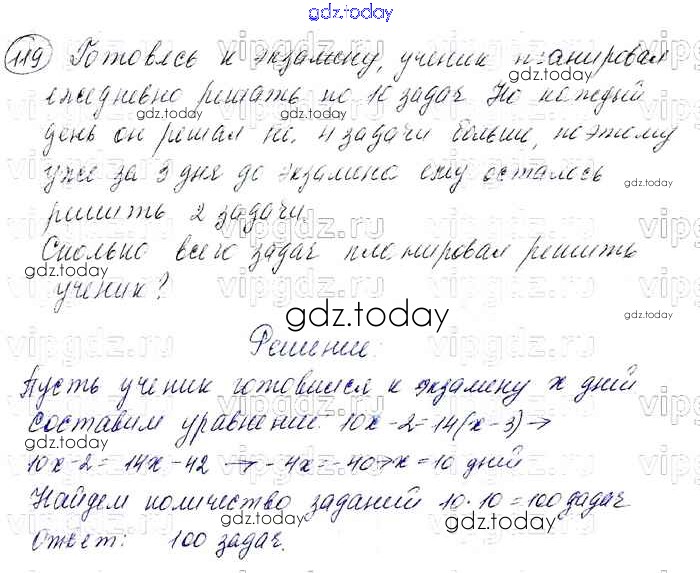 gdz.today
119 Готовясь к экзамену, ученик планировал
ежедневно решать по 10 задач. Но каждый
день он решал по 4 задачи больше, поэтому
уже за 3 дня до экзамена ему осталось
решить 2 задачи.
Сколько всего задач планировал решить
ученик?
gdz.today
Решение:
Пусть ученик готовился к экзамену x дней
Составим уравнение: 10x-2=14(x-3)→
10x-2=14x-42 → -4x=-40→x=10 дней
Найдем количество заданий 10·10=100 задач
Ответ: 100 задач.